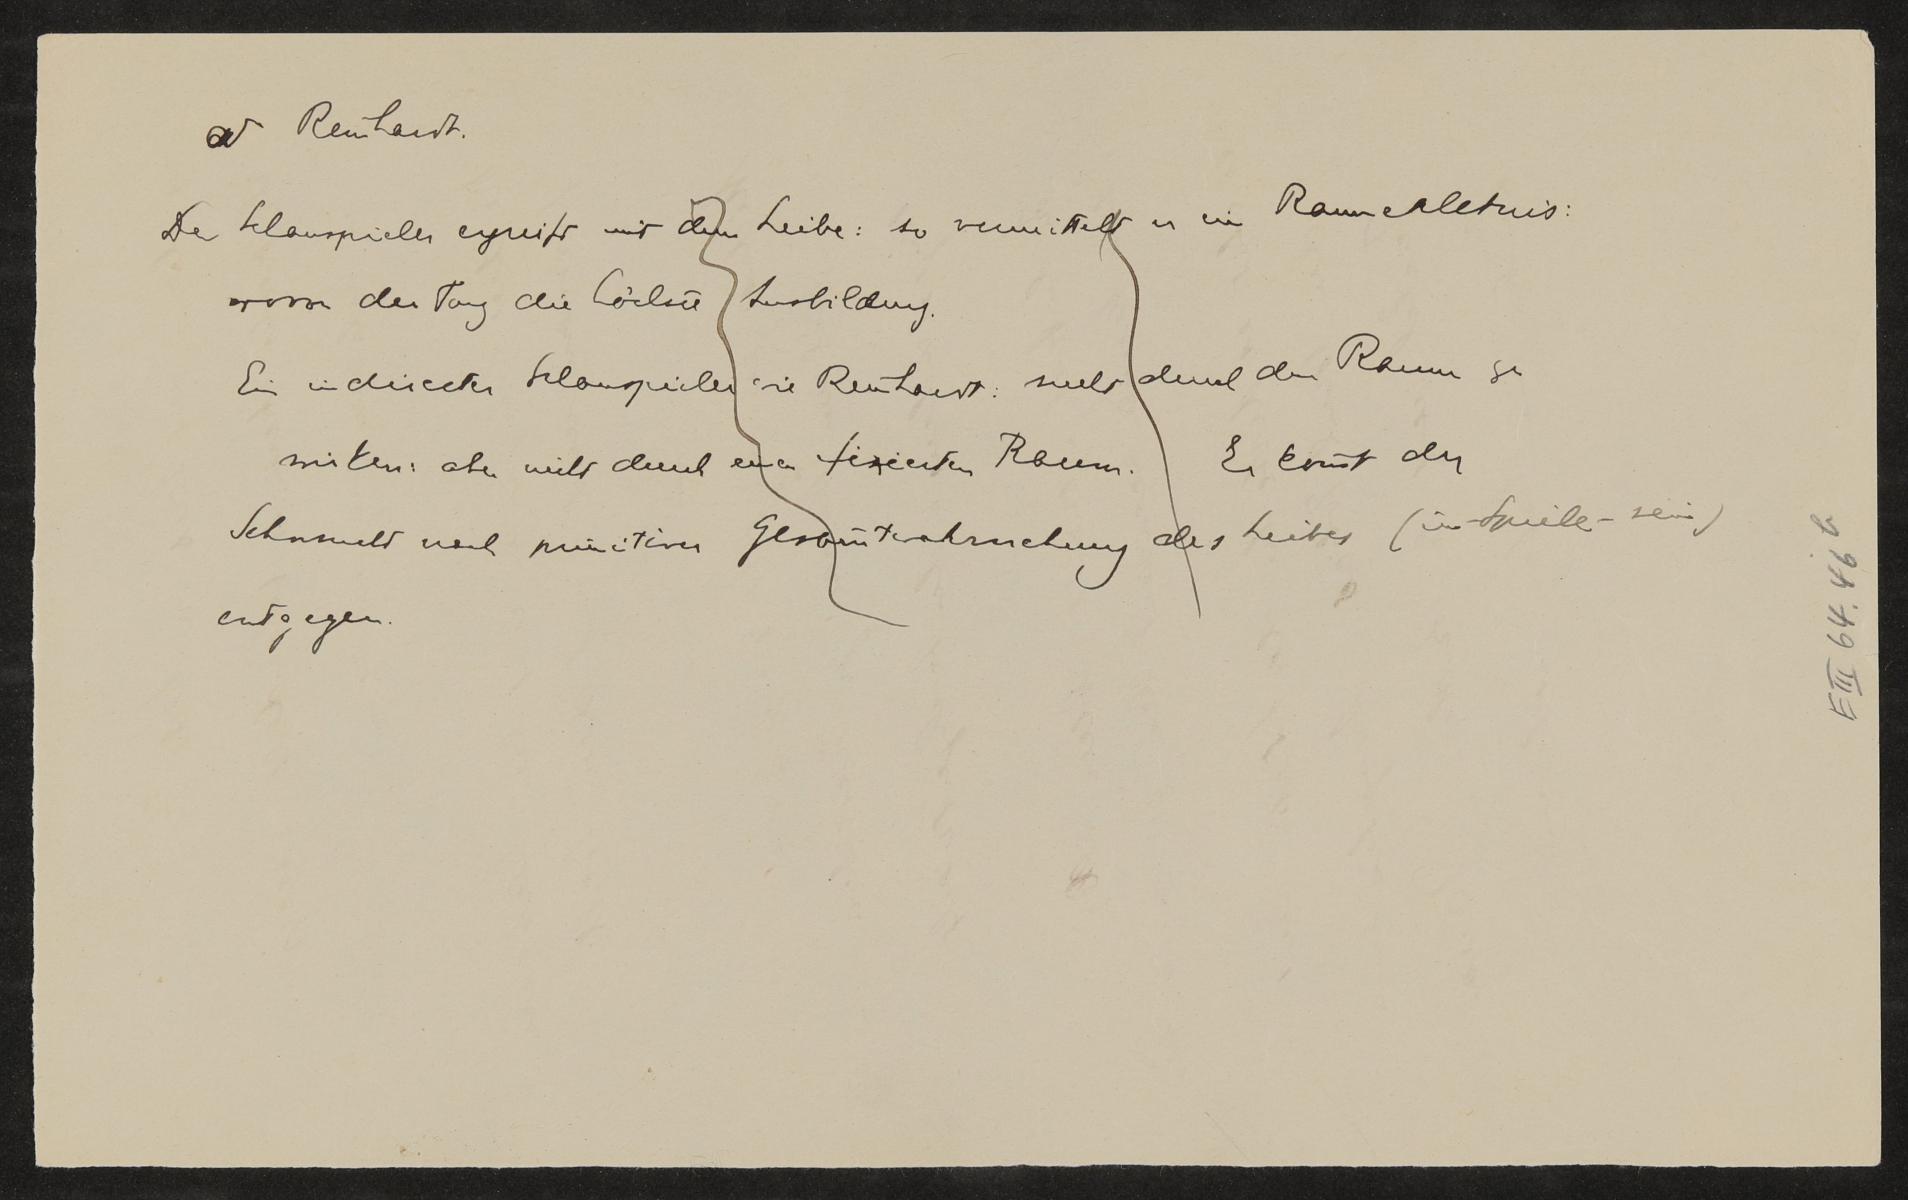 ad Reinhardt.
Der Schauspieler ergreift mit dem Leibe: so vermittelt er ein Raumerlebnis:
wovon der Tanz die höchste Ausbildung.
Ein indirecter Schauspieler wie Reinhardt: sucht durch den Raum zu
wirken: aber nicht durch einen fixierten Raum. Er kommt der
Sehnsucht nach primitiver Gesamtwahrnehmung des Leibes (im-Spiele-sein)
entgegen.
E III 64.46 b